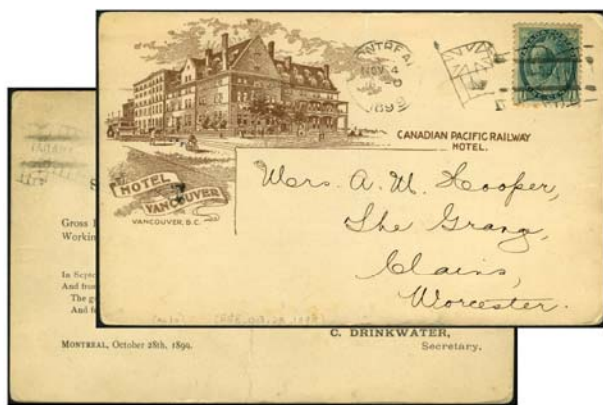 MONTREAL
NOV 4
1899
CANADIAN PACIFIC RAILWAY
HOTEL.
HOTEL
VANCOUVER
VANCOUVER, B.C.
Mrs. A. M. Hooper,
The Grang,
Clains,
Worcester.
Gross
Workin
In Sept
And fro
The g
And f
C. DRINKWATER,
MONTREAL, October 28th, 1899.
Secretary.